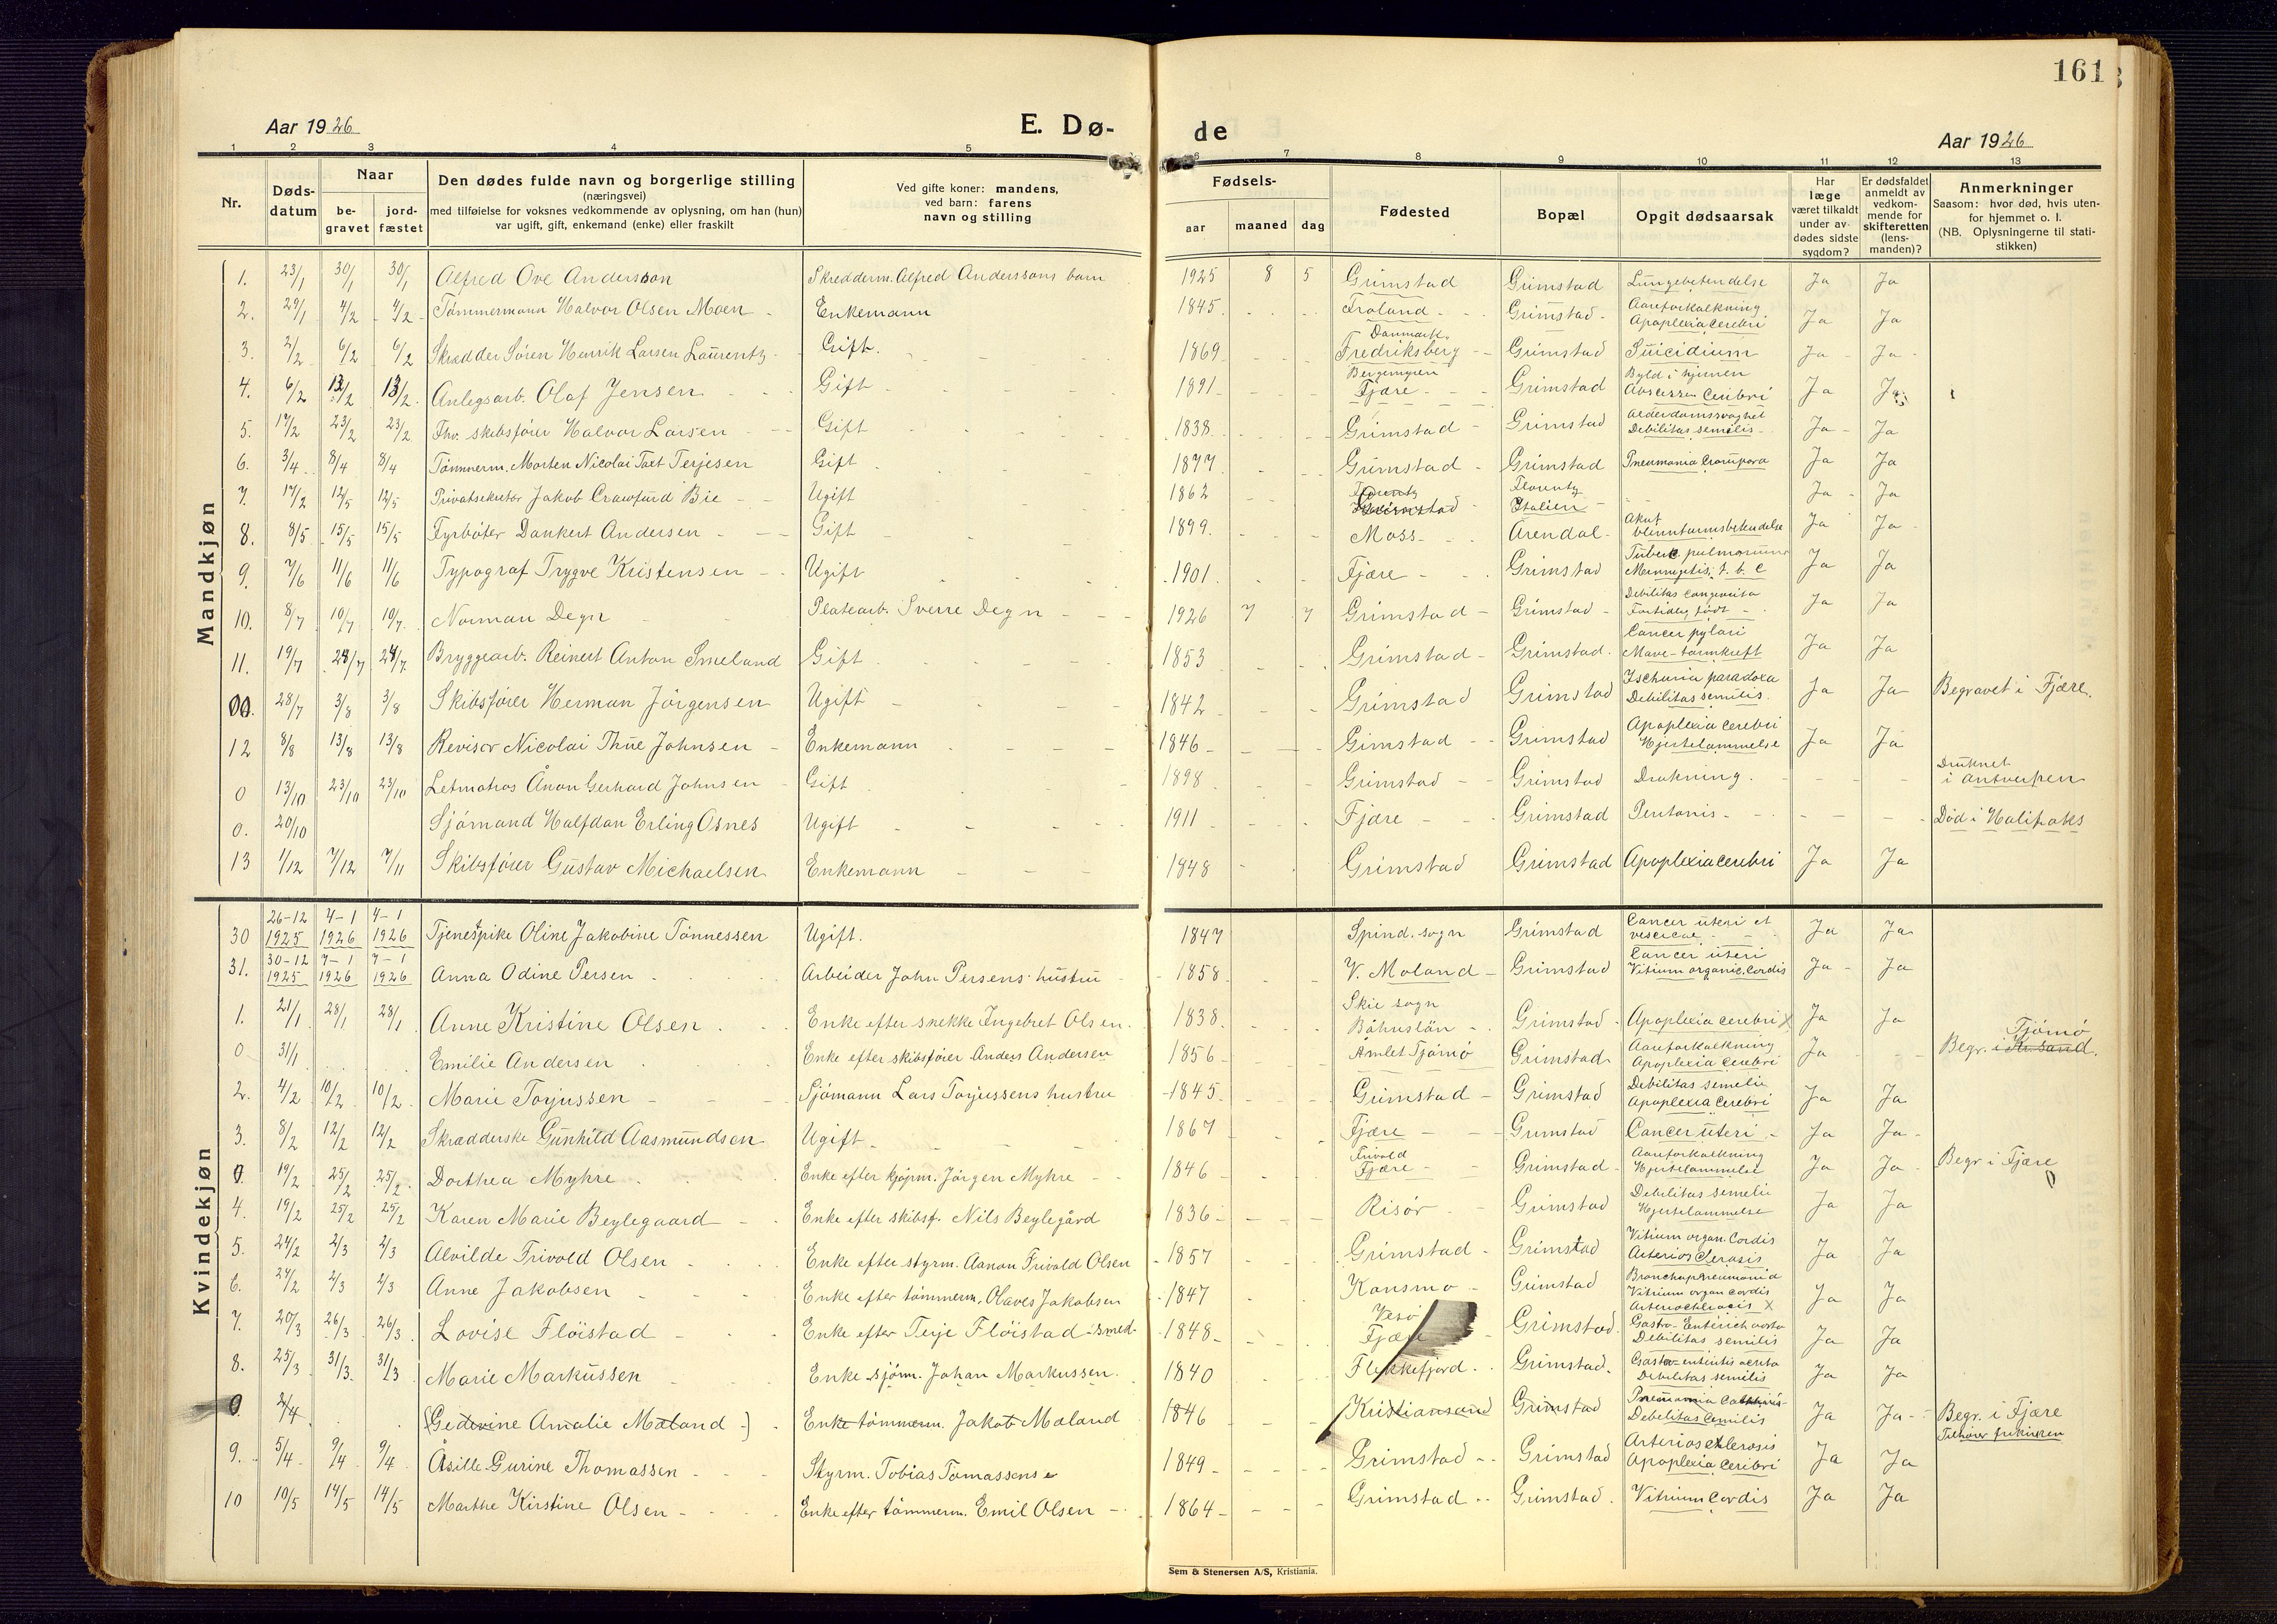 161
Aar 1926
E. Dø-
de
Aar 1926
1 2 3 4 5 6 7 8 9 10 11 12 13
Nr.
Døds-
datum
Naar
be-
gravet
jord-
fæstet
Den dødes fulde navn og borgerlige stilling
(næringsvei)
med tilføielse for voksnes vedkommende av oplysning, om han (hun)
var ugift, gift, enkemand (enke) eller fraskilt
Ved gifte koner: mandens,
ved barn: farens
navn og stilling
Fødsels-
aar maaned dag
Fødested
Bopæl
Opgit dødsaarsak
Har
læge
været tilkaldt
under av-
dødes sidste
sygdom?
Er dødsfaldet
anmeldt av
vedkom-
mende for
skifteretten
(lens-
manden)?
Anmerkninger
Saasom: hvor død, hvis uten-
for hjemmet o. l.
(NB. Oplysningerne til stati-
stikken)
Mandkjøn
1. 23/1 30/1 30/1 Alfred Ove Andersson Skrædderm. Alfred Anderssons barn 1925 8 5 Grimstad Grimstad Lungebetendelse Ja Ja
2. 29/1 4/2 4/2 Tømmermann Halvor Olsen Moen Enkemann 1845 Froland Grimstad Aareforkalkning
Apoplexia cerebri Ja Ja
3. 2/2 6/2 6/2 Skrædder Søren Henrik Larsen Laurentz Gift. 1869 Danmark
Fredriksberg Grimstad Suicidium Ja Ja
4. 6/2 13/2 13/2 Anlegsarb. Olaf Jensen Gift 1891 Bergemyren
Fjære Grimstad Byld i hjernen
Abscessus Cerebri Ja Ja
5. 17/2 23/2 23/2 Fhv. skibsfører Halvor Larsen Gift 1838 Grimstad Grimstad Alderdomssvaghet
Debilitas semilis Ja Ja
6. 3/4 8/4 8/4 Tømmerm. Morten Nicolai Terjesen Gift 1877 Grimstad Grimstad Pneumonia Crouposa Ja Ja
7. 17/2 12/5 12/5 Privatsekretær Jakob Crawfurd Bie Ugift 1862 Grimstad Florentz
Italien Ja Ja
8. 8/5 15/5 15/5 Fyrbøter Dankert Andersen Gift 1899. Moss Arendal Akut
blindtarmsbetendelse Ja Ja
9. 7/6 11/6 11/6 Typograf Trygve Kristensen Ugift 1901 Fjære Grimstad Tuberc. pulmonum
t. b. c Ja Ja
10. 8/7 10/7 10/7 Norman Degn Platearb. Sverre Degn 1926 7 7 Grimstad Grimstad Debilitas Congenita
Fortidlig født Ja Ja
11. 19/7 24/7 24/7 Bryggearb. Reinert Anton Smeland Gift 1853 Grimstad Grimstad Cancer pylori
Mave-tarmkreft Ja Ja
00. 28/7 3/8 3/8 Skibsfører Herman Jørgensen Ugift 1842 Grimstad Grimstad Ischuria paradoxa
Debilitas semilis Ja Ja Begravet i Fjære
12 8/8 13/8 13/8 Revisor Nicolai Thue Johnsen Enkemann 1846 Gimstad Grimstad Apoplexia cerebri
Hjertelammelse Ja Ja
0 13/10 23/10 23/10 Letmatros Ånon Gerhard Johnsen Gift 1898 Grimstad Grimstad Drukning. Druknet
i Antwerpen
0. 20/10 Sjømand Halfdan Erling Osnes Ugift 1911 Fjære Grimstad Peritonis Død i Halifaks
13 1/12 7/12 7/11 Skibsfører Gustav Michaelsen Enkemann 1848 Grimstad Grimstad Apoplexia cerebri Ja Ja
Kvindekjøn
30 26-12 1925 4-1 1926 4-1 1926 Tjenestpike Oline Jakobine Tønnessen Ugift. 1847 Spind. sogn Grimstad Cancer uteri et
vescicae Ja Ja
31. 30-12 1925 7-1 1926 7-1 1926 Anna Odine Persen Arbeider John Persens hustru 1858 V. Moland Grimstad Cancer uteri
Vitium organic. Cordis Ja Ja
1. 21/1 28/1 28/1 Anne Kristine Olsen Enke efter snekke Ingebret Olsen 1838. Skie sogn
Båhuslän Grimstad Apoplexia cerebri X Ja Ja
0 31/1 Emilie Andersen Enke efter skibsfører Anders Andersen 1856 Åmlet Tjømø Grimstad Aareforkalkning
Apoplexia cerebri Ja Tjømø
Begr. i Kr.sand.
2. 4/2 10/2 10/2 Marie Torjussen Sjømann Lars Torjussens hustru 1845 Grimstad Grimstad Debilitas semelis
Apoplexia Cerebri Ja Ja
3. 8/2 12/2 12/2 Skrædderske Gunhild Aasmundsen Ugift 1867 Fjære Grimstad Cancer uteri Ja Ja
0. 19/2 25/2 25/2 Dorthea Myhre Enke efter kjøpm. Jørgen Myhre 1846 Frivold
Fjære Grimstad Aareforkalkning
Hjertelammelse Ja Ja Begr i Fjære
4. 19/2 25/2 25/2 Karen Marie Beylegaard Enke efter skibsf. Nils Beylegård 1836 Risør Grimstad Debilitas semelis
Hjertelammelse Ja Ja
5. 24/2 2/3 2/3 Alvilde Frivold Olsen Enke efter styrm. Aanon Frivold Olsen 1857 Grimstad Grimstad Vitium organ. Cordis
Arteriosclerosis Ja Ja
6. 27/2 2/3 2/3 Anne Jakobsen Enke efter tømmerm. Olaves Jakobsen 1847 Konsmo Grimstad Bronchopneumonia
Vitrium organ cordis
Arteriosclerosis X Ja Ja
7. 20/3 26/3 26/3 Lovise Fløistad Enke efter Terje Fløistad smed 1848 Vesø
Fjære Grimstad
Debilitas semilis Ja Ja
8. 25/3 31/3 31/3 Marie Markussen Enke sjøm. Johan Markussen. 1840 Flekkefjord Grimstad Gastro-enteritis acuta
Debilitas semilis Ja Ja
0. 2/4 (Gedevine Amalie Møland) Enke tømmerm. Jakob Moland 1846 Kristiansand Grimstad Pneumonia
Debilitas semilis Ja Ja Begr. i Fjære
Tilhører frikirken
9. 5/4 9/4 9/4 Åsille Gurine Thomassen Styrm. Tobias Tomassens e 1849 Grimstad Grimstad Arteriosclerosis
Apoplexia Cerebri Ja Ja
10 10/5 14/5 14/5 Marthe Kirstine Olsen Enke efter tømmerm. Emil Olsen 1864 Grimstad Grimstad Vitrium Cordis Ja Ja
Sem & Stenersen A/S, Kristiania.